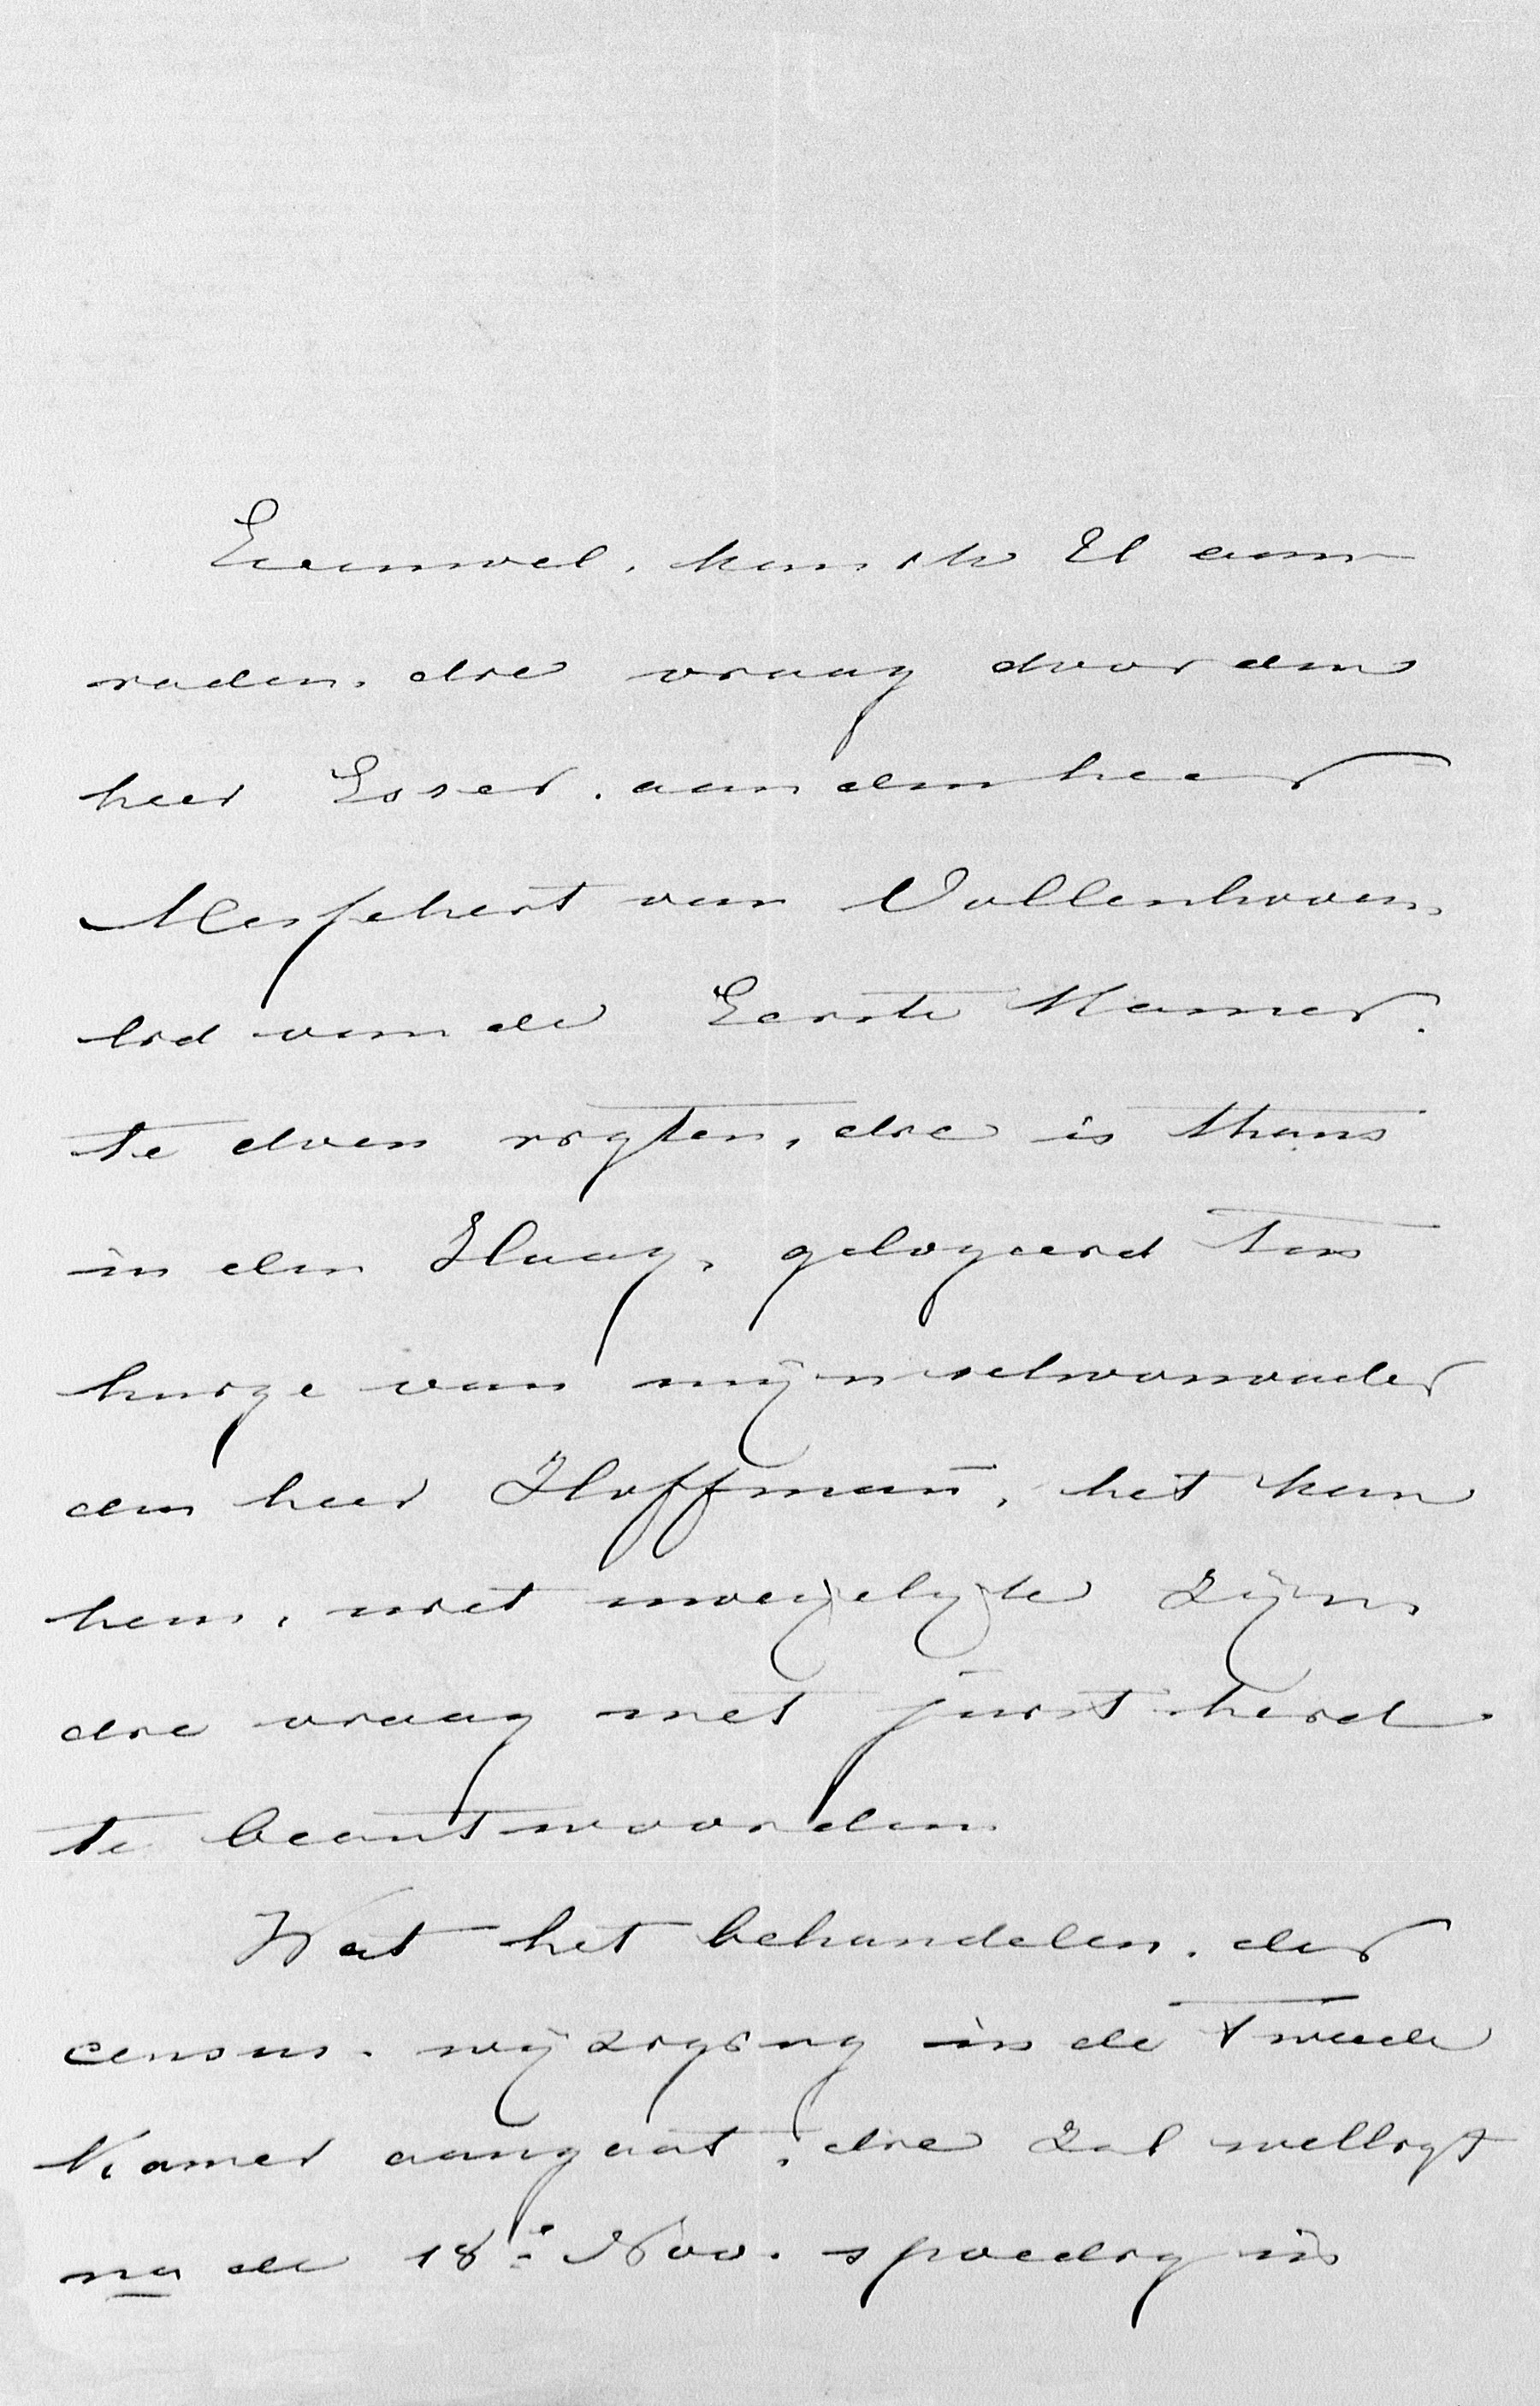 Evenwel, kan ik U aan
raden, die vraag door den
heer Esser, aan den heer
Messchert van Vollenhoven,
lid van de Eerste Kamer.
te doen rigten, die is thans
in den Haag, gelogeerd ten
huize van mijn schoonvader
den heer Hoffman, het kan
hem, niet moeijelijk zijn,
die vraag met juistheid
te beantwoorden.
Wat het behandelen, der
census-wijziging in de Tweede
Kamer aangaat, die zal welligt
na de 18e Nov. spoedig in